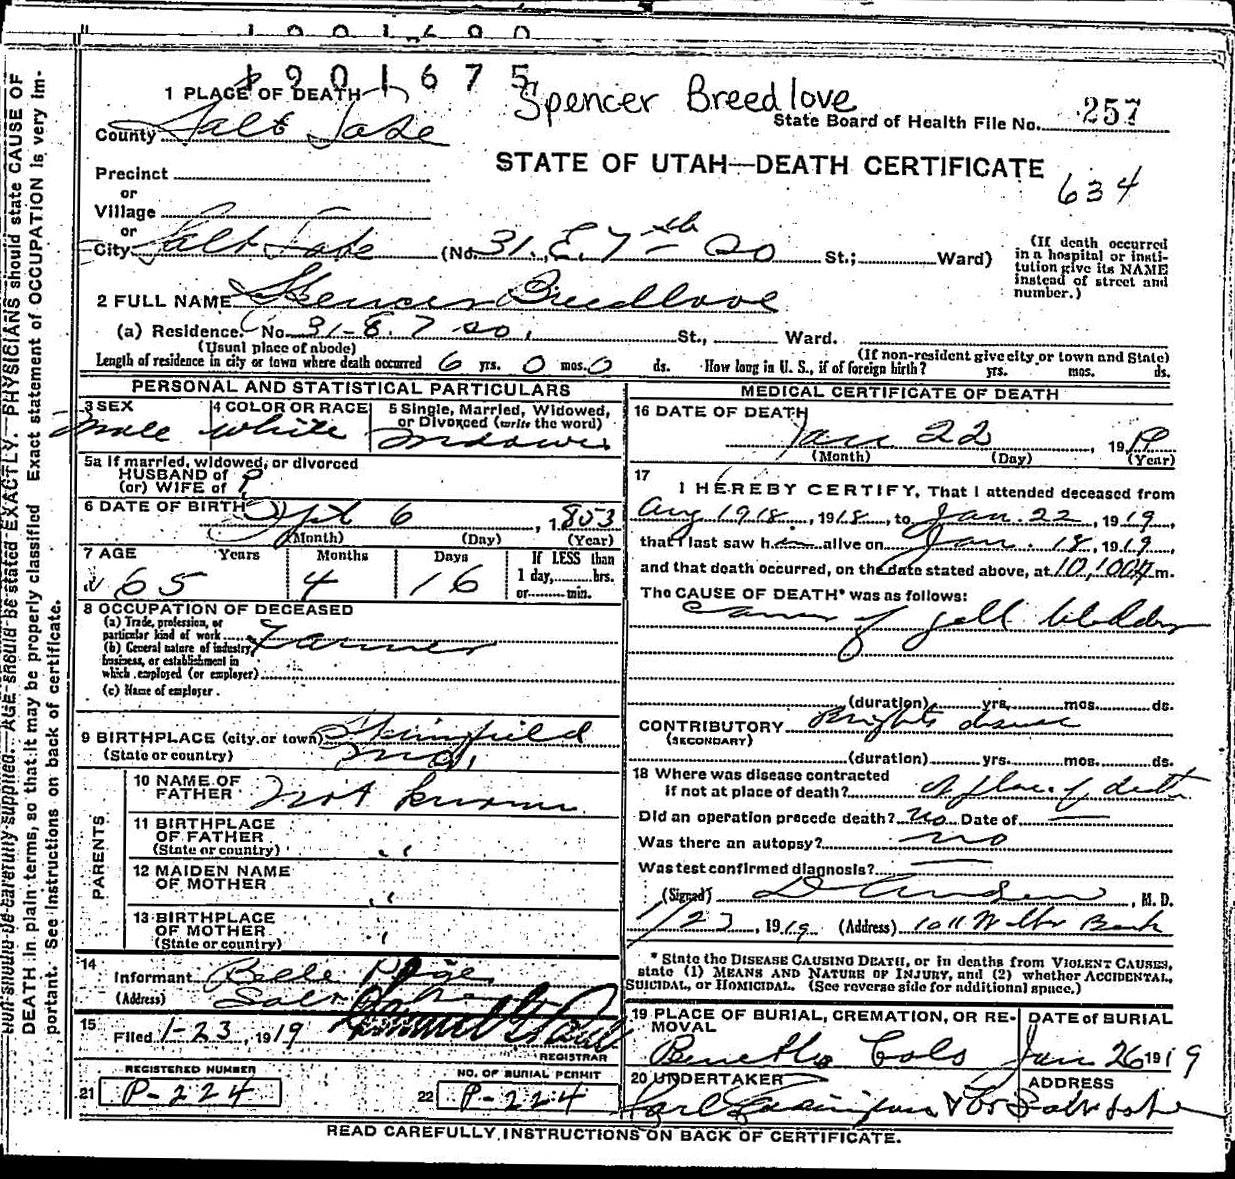 1901675
Spencer Breedlove
1 PLACE OF DEATH
County Salt Lake
State Board of Health File No. 257
STATE OF UTAH—DEATH CERTIFICATE
634
Precinct
or
Village
or
City Salt Lake (No. 31. E. 7th So St.; Ward)
(If death occurred
in a hospital or insti-
tution give its NAME
instead of street and
number.)
2 FULL NAME Spencer Breedlove
(a) Residence. No. 31-E. 7 So. St., Ward.
(Usual place of abode) (If non-resident give city or town and State)
Length of residence in city or town where death occurred 6 yrs. 0 mos. 0 ds. How long in U. S., if of foreign birth? yrs. mos. ds.
PERSONAL AND STATISTICAL PARTICULARS
3 SEX male
4 COLOR OR RACE white
5 Single, Married, Widowed,
or Divorced (write the word)
5a If married, widowed, or divorced
HUSBAND of
(or) WIFE of ?
6 DATE OF BIRTH Sept 6, 1853
(Month) (Day) (Year)
7 AGE Years Months Days If LESS than
65 4 16 1 day, hrs.
or min.
8 OCCUPATION OF DECEASED
(a) Trade, profession, or
particular kind of work Farmer
(b) General nature of industry,
business, or establishment in
which employed (or employer)
(c) Name of employer
9 BIRTHPLACE (city or town)
(State or country)
PARENTS
10 NAME OF
FATHER not known
11 BIRTHPLACE
OF FATHER
(State or country) "
12 MAIDEN NAME
OF MOTHER "
13 BIRTHPLACE
OF MOTHER
(State or country) "
14
Informant Belle
(Address) Salt Lake
15
Filed 1-23, 1919
REGISTRAR
REGISTERED NUMBER
21 P-224
NO. OF BURIAL PERMIT
22 P-224
MEDICAL CERTIFICATE OF DEATH
16 DATE OF DEATH
Jan 22, 1919
(Month) (Day) (Year)
17
I HEREBY CERTIFY, That I attended deceased from
Aug 1918, 1918, to Jan. 22, 1919,
that I last saw him alive on Jan. 18, 1919,
and that death occurred, on the date stated above, at m.
The CAUSE OF DEATH* was as follows:
Cancer of gall bladder
(duration) yrs. mos. ds.
CONTRIBUTORY Brights disease
(SECONDARY)
(duration) yrs. mos. ds.
18 Where was disease contracted
if not at place of death? At place of death
Did an operation precede death? no Date of —
Was there an autopsy? no
Was test confirmed diagnosis? —
(Signed) , M. D.
1/23, 1919 (Address) 1011 Walker Bank
* State the DISEASE CAUSING DEATH, or in deaths from VIOLENT CAUSES,
state (1) MEANS AND NATURE OF INJURY, and (2) whether ACCIDENTAL,
SUICIDAL, or HOMICIDAL. (See reverse side for additional space.)
19 PLACE OF BURIAL, CREMATION, OR RE-
MOVAL
Colo
DATE of BURIAL
Jan 26 1919
20 UNDERTAKER
ADDRESS
Salt Lake
READ CAREFULLY INSTRUCTIONS ON BACK OF CERTIFICATE.
AGE should be stated EXACTLY. PHYSICIANS should state CAUSE OF
DEATH in plain terms, so that it may be properly classified. Exact statement of OCCUPATION is very im-
portant. See instructions on back of certificate.